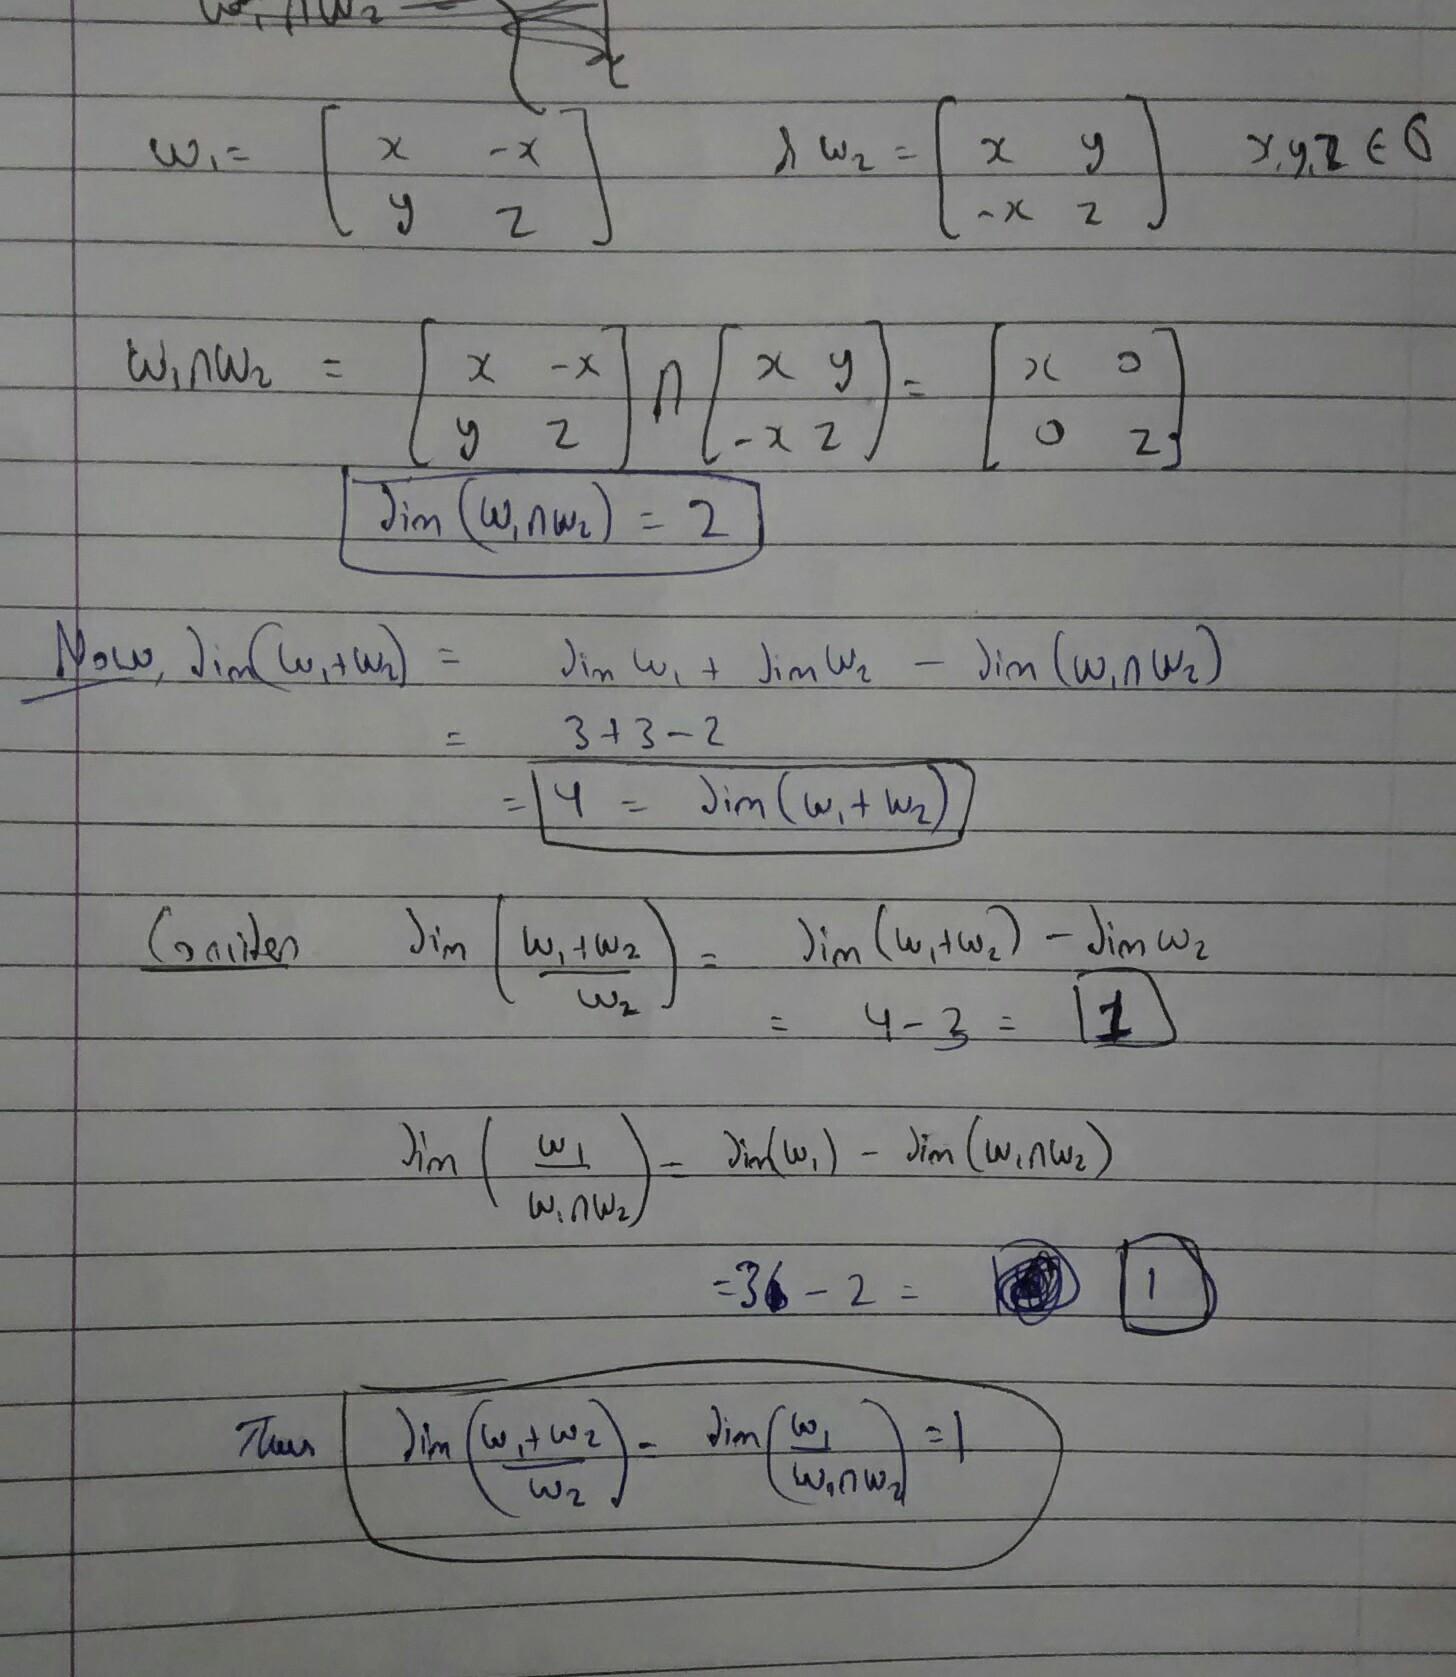 W₁∩W₂
W₁ = [ x -x ; y z ] & W₂ = [ x y ; -x z ] x,y,z ∈
W₁∩W₂ = [ x -x ; y z ] ∩ [ x y ; -x z ] = [ x 0 ; 0 z ]
dim (W₁∩W₂) = 2
Now, dim(W₁+W₂) = dim W₁ + dim W₂ - dim (W₁∩W₂)
= 3+3-2
= 4 = dim (W₁+W₂)
Consider dim ( W₁+W₂ / W₂ ) = dim (W₁+W₂) - dim W₂
= 4-3 = 1
dim ( W₁ / W₁∩W₂ ) = dim(W₁) - dim (W₁∩W₂)
= 3 - 2 = 1
Thus dim ( W₁+W₂ / W₂ ) = dim ( W₁ / W₁∩W₂ ) = 1